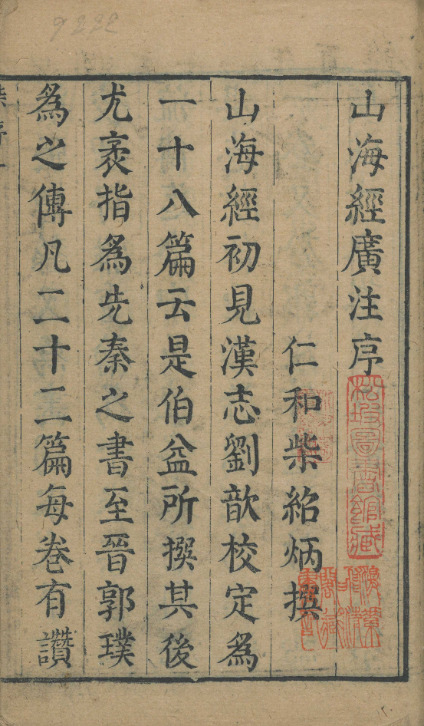 山海經廣注序
仁和柴紹炳撰
山海經初見漢志劉歆校定爲
一十八篇云是伯益所撰其後
尤袤指爲先秦之書至晉郭璞
爲之傳凡二十二篇每卷有讚
松坡圖書館藏
9222